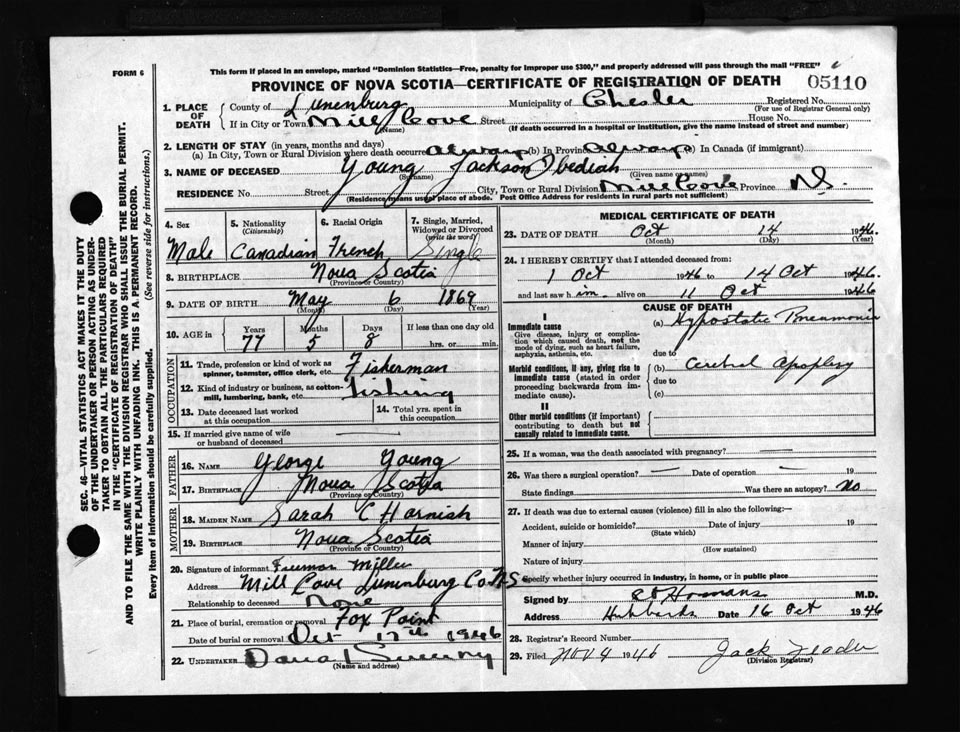 FORM 6
This form if placed in an envelope, marked "Dominion Statistics—Free, penalty for improper use $300," and properly addressed will pass through the mail "FREE"
PROVINCE OF NOVA SCOTIA—CERTIFICATE OF REGISTRATION OF DEATH
05110
1. PLACE OF DEATH County of Lunenburg Municipality of Chester Registered No.
(For use of Registrar General only)
If in City or Town Mill Cove Street House No.
(Name) (If death occurred in a hospital or institution, give the name instead of street and number)
2. LENGTH OF STAY (in years, months and days)
(a) In City, Town or Rural Division where death occurred Always (b) In Province Always (c) In Canada (if immigrant)
3. NAME OF DECEASED Young Jackson Obediah
(Surname) (Given name or names)
RESIDENCE No. Street City, Town or Rural Division Mill Cove Province N.S.
(Residence means usual place of abode. Post Office Address for residents in rural parts not sufficient)
4. Sex 5. Nationality 6. Racial Origin 7. Single, Married, Widowed or Divorced
(Citizenship) (write the word)
Male Canadian French Single
8. BIRTHPLACE Nova Scotia
(Province or Country)
9. DATE OF BIRTH May 6 1869
(Month) (Day) (Year)
10. AGE in Years Months Days If less than one day old
77 5 8 hrs. or min.
OCCUPATION
11. Trade, profession or kind of work as spinner, teamster, office clerk, etc. Fisherman
12. Kind of industry or business, as cotton-mill, lumbering, bank, etc. Fishing
13. Date deceased last worked at this occupation
14. Total yrs. spent in this occupation
15. If married give name of wife or husband of deceased
FATHER
16. NAME George Young
17. BIRTHPLACE Nova Scotia
(Province or Country)
MOTHER
18. MAIDEN NAME Sarah C Harnish
19. BIRTHPLACE Nova Scotia
(Province or Country)
20. Signature of informant Freeman Miller
Address Mill Cove Lunenburg Co. N.S.
Relationship to deceased None
21. Place of burial, cremation or removal Fox Point
Date of burial or removal Oct 17th 1946
22. UNDERTAKER
(Name and address)
MEDICAL CERTIFICATE OF DEATH
23. DATE OF DEATH Oct 14 1946.
(Month) (Day) (Year)
24. I HEREBY CERTIFY that I attended deceased from:
1 Oct 1946 to 14 Oct 1946.
and last saw him alive on 11 Oct 1946
CAUSE OF DEATH
I
Immediate cause
Give disease, injury or complication which caused death, not the mode of dying, such as heart failure, asphyxia, asthenia, etc.
(a) Hypostatic Pneumonia
due to
Morbid conditions, if any, giving rise to immediate cause (stated in order proceeding backwards from immediate cause).
(b) Cerebral Apoplexy
due to
(c)
II
Other morbid conditions (if important) contributing to death but not causally related to immediate cause.
25. If a woman, was the death associated with pregnancy?
26. Was there a surgical operation? Date of operation 19
State findings Was there an autopsy? No
27. If death was due to external causes (violence) fill in also the following:
Accident, suicide or homicide? Date of injury 19
(State which)
Manner of injury
(How sustained)
Nature of injury
Specify whether injury occurred in industry, in home, or in public place
Signed by M.D.
Address Hubbards Date 16 Oct 1946
28. Registrar's Record Number
29. Filed Nov 4 1946 Jack
(Division Registrar)
SEC. 46—VITAL STATISTICS ACT MAKES IT THE DUTY
OF THE UNDERTAKER OR PERSON ACTING AS UNDER-
TAKER TO OBTAIN ALL THE PARTICULARS REQUIRED
IN THE "CERTIFICATE OF REGISTRATION OF DEATH"
AND TO FILE THE SAME WITH THE DIVISION REGISTRAR WHO SHALL ISSUE THE BURIAL PERMIT.
WRITE PLAINLY WITH UNFADING INK. THIS IS A PERMANENT RECORD.
Every item of information should be carefully supplied. (See reverse side for instructions.)